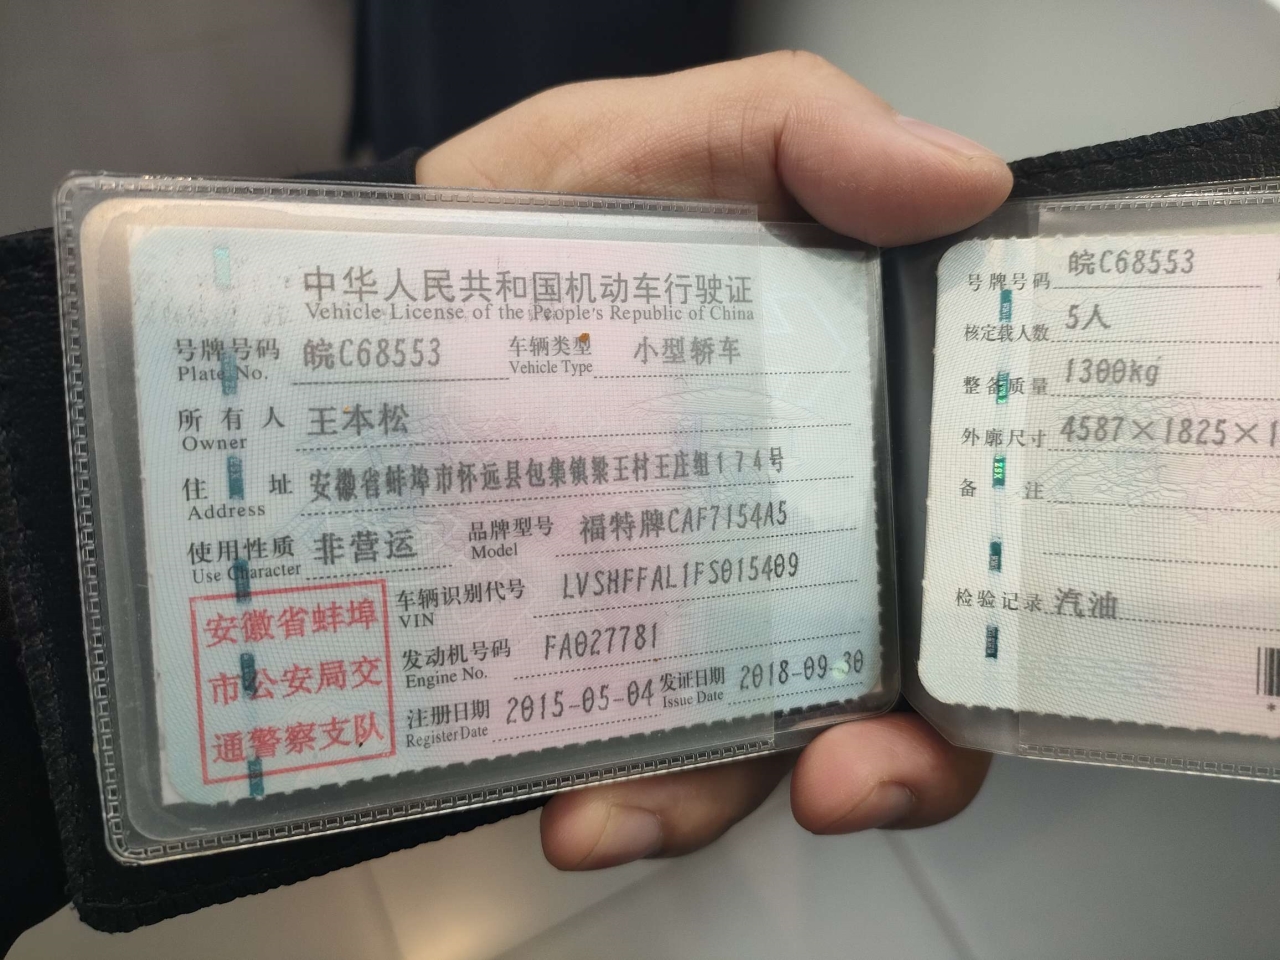 中华人民共和国机动车行驶证
Vehicle License of the People's Republic of China
号牌号码 皖C68553 车辆类型 小型轿车
Plate No. Vehicle Type
所有人 王本松
Owner
住址 安徽省蚌埠市怀远县包集镇梁王村王庄组174号
Address
使用性质 非营运 品牌型号 福特牌CAF7154A5
Use Character Model
车辆识别代号 LVSHFFAL1FS015409
VIN
发动机号码 FA027781
Engine No.
注册日期 2015-05-04 发证日期 2018-09-30
Register Date Issue Date
安徽省蚌埠
市公安局交
通警察支队
号牌号码 皖C68553
核定载人数 5人
整备质量 1300kg
外廓尺寸 4587×1825×1
备注
检验记录 汽油
*